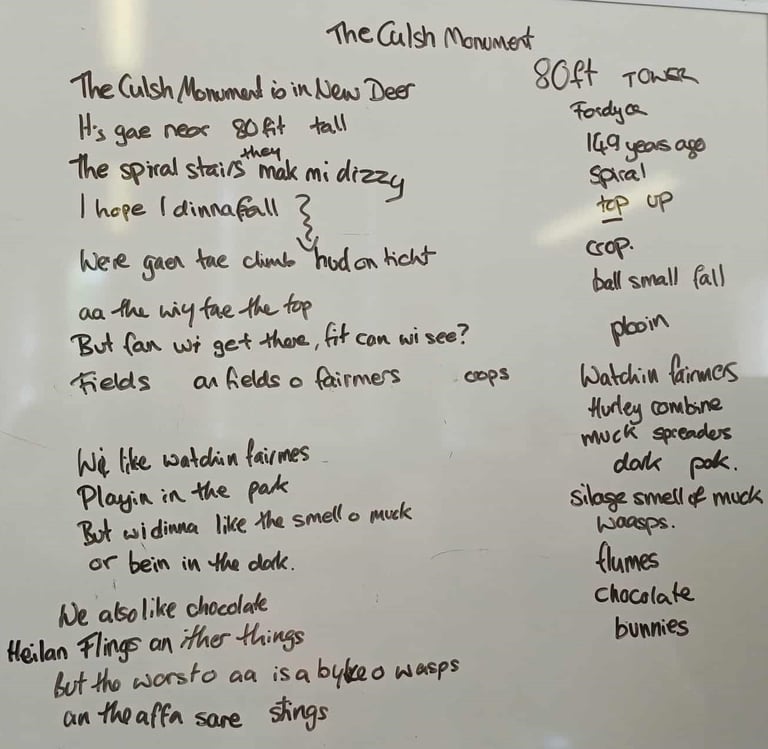 The Culsh Monument
The Culsh Monument is in New Deer
It's gae near 80fit tall
The spiral stairs they mak mi dizzy
I hope I dinna fall
We're gaen tae climb hud on ticht
aa the wiy tae the top
But fan wi get there, fit can wi see?
Fields an fields o fairmers crops
We like watchin fairmes
Playin in the park
But wi dinna like the smell o muck
or bein in the dark.
We also like chocolate
Heilan Flings an ither things
But the worst o aa is a byke o wasps
an the affa sare stings
80ft TOWER
Fordyce
149 years ago
Spiral
top up
crop.
ball small fall
Watchin fairmes
Hurley combine
muck spreaders
dark park.
Silage smell of muck
Waasps.
flumes
chocolate
bunnies